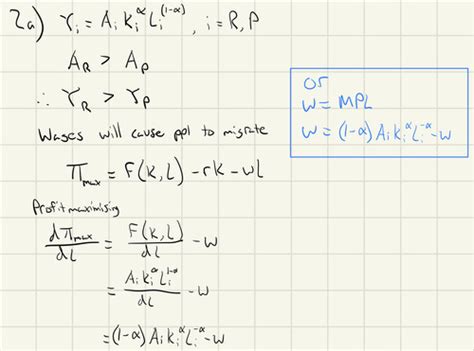 2a) Yᵢ = Aᵢ Kᵢ^α Lᵢ^(1-α) , i = R, P
A_R > A_P
∴ Y_R > Y_P
Wages will cause ppl to migrate
Π_max = F(K,L) - rK - wL
Profit maximising
dΠ_max/dL = F(K,L)/dL - w
= Aᵢ Kᵢ^α Lᵢ^(1-α)/dL - w
= (1-α) Aᵢ Kᵢ^α Lᵢ^-α - w
or
w = MPL
w = (1-α) Aᵢ Kᵢ^α Lᵢ^-α - w